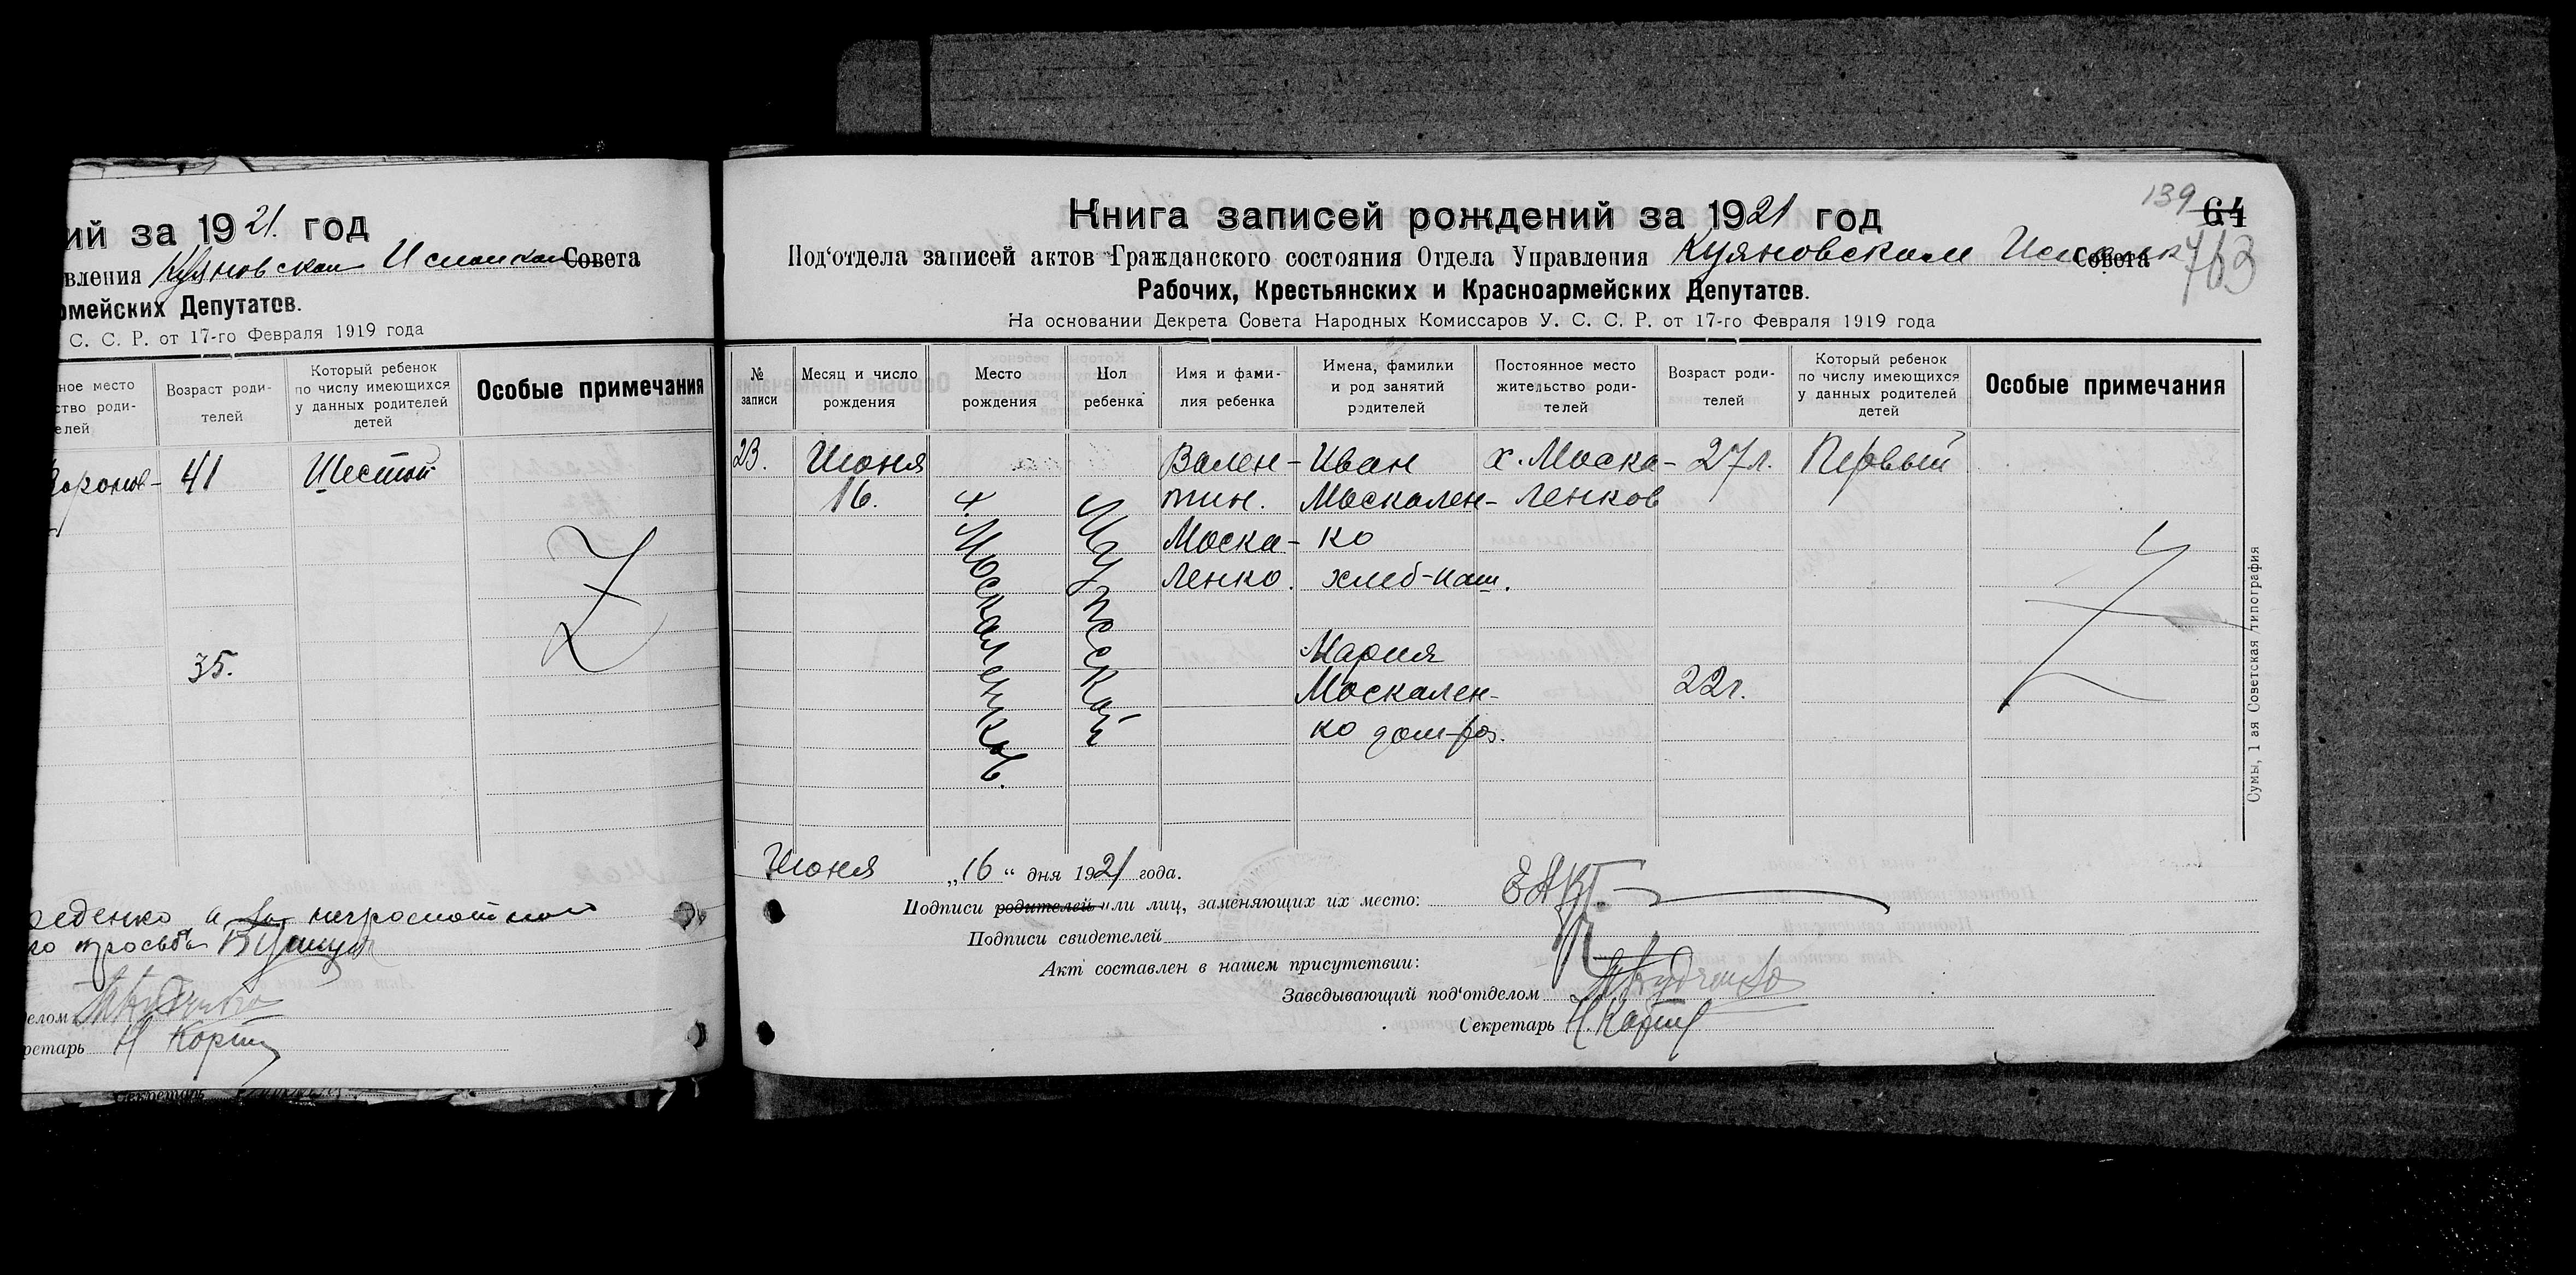 ий за 1921. год
вления Куяновском Исполком Совета
рмейских Депутатов.
С. С. Р. от 17-го Февраля 1919 года
ное место
ство роди-
елей
Возраст роди-
телей
Который ребенок
по числу имеющихся
у данных родителей
детей
Особые примечания
41
Шестой
35.
а за неграмотного
го просьбе
елом
ретарь Н
Секретарь
139 64
763
Книга записей рождений за 1921 год
Под‘отдела записей актов Гражданского состояния Отдела Управления Куяновском Совета
Рабочих, Крестьянских и Красноармейских Депутатов.
На основании Декрета Совета Народных Комиссаров У. С. С. Р. от 17-го Февраля 1919 года
№
записи
Месяц и число
рождения
Место
рождения
Пол
ребенка
Имя и фами-
лия ребенка
Имена, фамилии
и род занятий
родителей
Постоянное место
жительство роди-
телей
Возраст роди-
телей
Который ребенок
по числу имеющихся
у данных родителей
детей
Особые примечания
23.
Июня
16.
х. Москаленков.
Мужской
Вален-
тин.
Моска-
ленко.
Иван
Москален-
ко
хлеб-паш.
Мария
Москален-
ко дом-хоз.
х. Моска-
ленков
27л.
22г.
Первый
Июня „16“ дня 1921 года.
Подписи родителей или лиц, заменяющих их место:
Подписи свидетелей
Акт составлен в нашем присутствии:
Заведывающий под‘отделом
Секретарь Н.
Сумы, 1 ая Советская типография